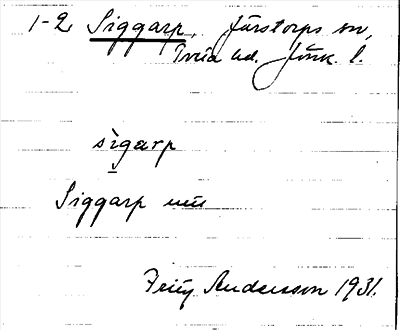 1-2 Siggarp, Järstorps sn,
Tveta hd. Jönk. l.
sìgarp
Siggarp
Andersson 1931.